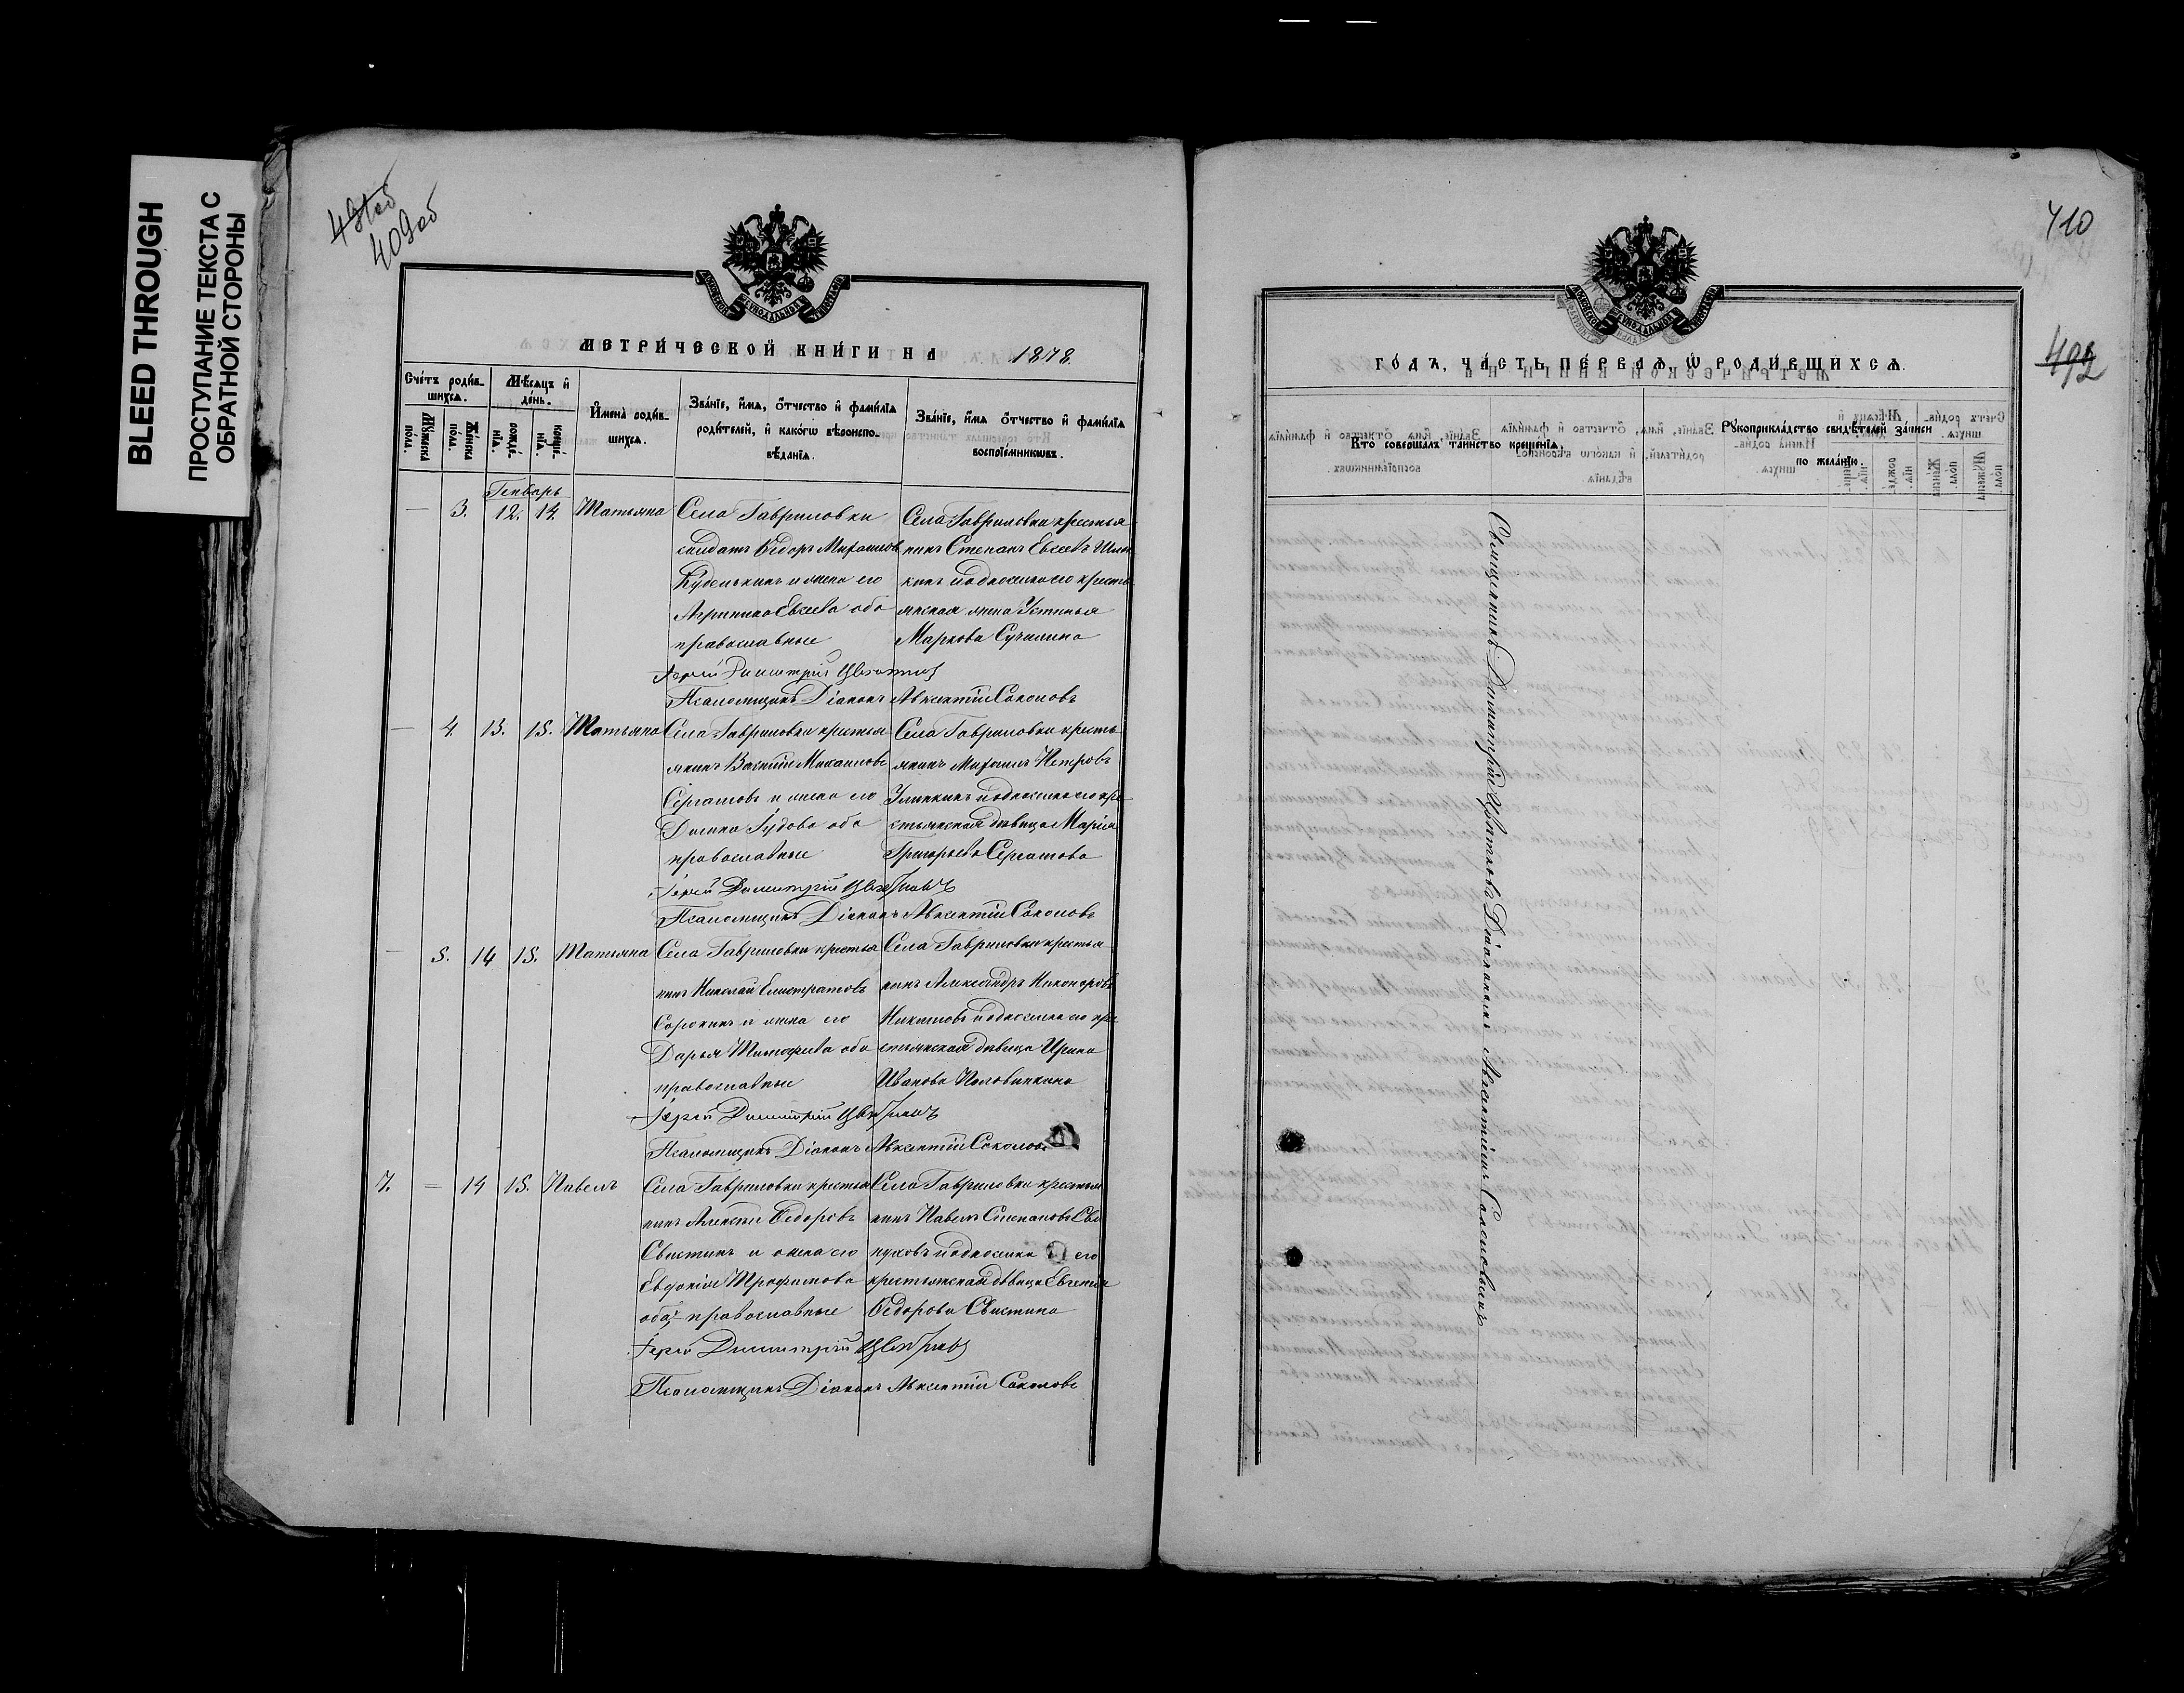 BLEED THROUGH
ПРОСТУПАНИЕ ТЕКСТА С
ОБРАТНОЙ СТОРОНЫ
409об
МЕТРИ́ЧЕСКОЙ КНИ́ГИ НА 1878.
Сче́тъ роди́в-
шихся.
Му́жеска по́ла.
Же́нска по́ла.
Мѣ́сяцъ и҆
де́нь.
рожде́-
нїѧ.
креще́-
нїѧ.
И҆мена̀ роди́в-
шихся.
Зва́нїе, и҆́мѧ, ѻ҆́тчество и҆ фами́лїѧ
роди́телей, и҆ како́гѡ вѣроиспо-
вѣ́данїѧ.
Зва́нїе, и҆́мѧ ѻ҆́тчество и҆ фами́лїѧ
воспрїе́мникѡвъ.
Генварь
— 3. 12. 14. Татьяна
Села Гавриловки
солдатъ Ѳедоръ Михаиловъ
Куделькинъ и жена его
Агрипина Евсеева оба
православные
Села Гавриловки крестья
нинъ Степанъ Евсеевъ
кинъ и односельца его кресть
янская жена Устинья
Маркова Сучилина
Іерей Димитрій Цвѣтковъ
Псаломщикъ Діаконъ Авксентій Соколовъ
— 4. 13. 15. Татьяна
Села Гавриловки крестья
янинъ Васи́лій Михаиловъ
Сергатовъ и жена его
Домна Гудова оба
православные
Села Гавриловки кресть
янинъ Михаилъ Петровъ
Улиткинъ и односельца его кре
стьянская дѣвица Марія
Григорьева Сергатова
Іерей Димитрій Цвѣтковъ
Псаломщикъ Діаконъ Авксентій Соколовъ
— 5. 14 15. Татьяна
Села Гавриловки крестья
нинъ Николай Елистратовъ
Сорокинъ и жена его
Дарья Тимофеева оба
православные
Села Гавриловки крестья
нинъ Александръ Никоноровъ
Никитовъ и односельца его кре
стьянская дѣвица Ирина
Иванова Половинкина
Іерей Димитрій Цвѣтковъ
Псаломщикъ Діаконъ Авксентій Соколовъ
7. — 14 15. Павелъ
Села Гавриловки крестья
нинъ Алексѣй Ѳедоровъ
Свистинъ и жена его
Евдокія Трофимова
оба православные
Села Гавриловки крестья
нинъ Павелъ Степановъ
пуховъ и односельца его
крестьянская дѣвица Евгенія
Ѳедорова Свистина
Іерей Димитрій Цвѣтковъ
Псаломщикъ Діаконъ Авксентій Соколовъ
410
492
ГО́ДЪ, ЧА́СТЬ ПЕ́РВАѦ Ѡ҆ РОДИ́ВШИХСѦ.
Кто̀ соверша́лъ та́инство креще́нїѧ.
Рꙋкоприкла́дство свидѣ́телей за́писи
по жела́нїю.
Священникъ Димитрій Цвѣтковъ съ Діакономъ Авксентіемъ Соколовымъ